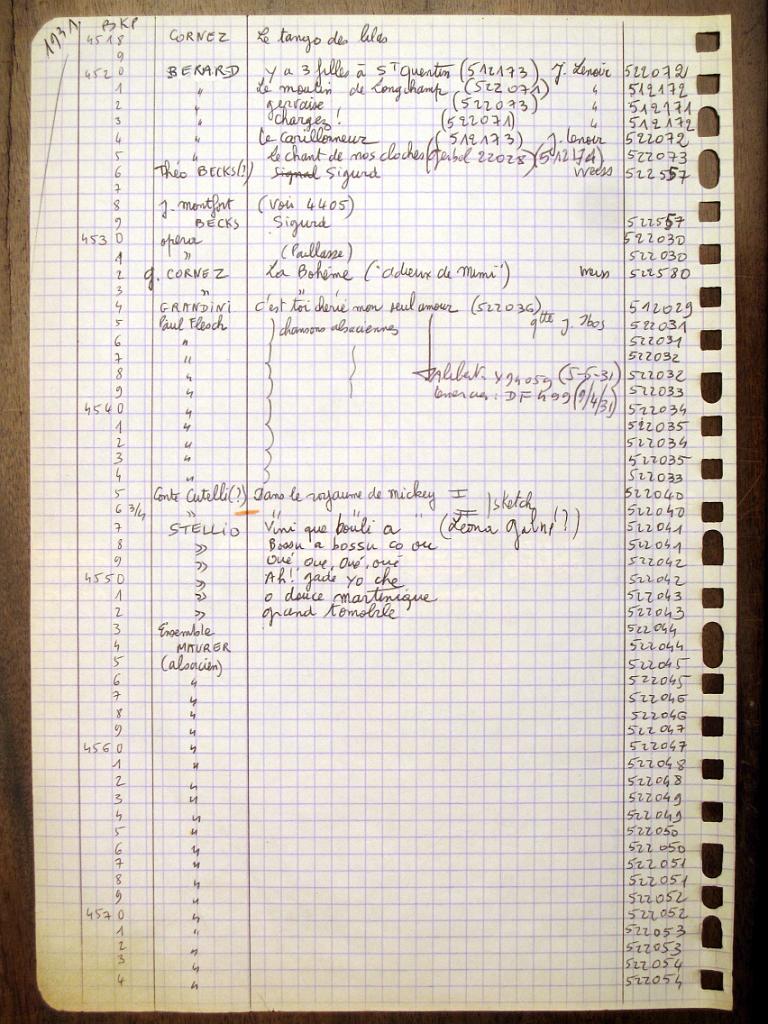 1931 BKP
4518 CORNEZ Le tango des lilas
9
4520 BERARD Y a 3 filles à St Quentin (512173) J. Lenoir 522072
1 " Le moulin de Longchamp (522071) " 512172
2 gervaise (522073) " 512171
3 " chargez! (522071) " 512172
4 " Le carillonneur (512173) J. Lenoir 522072
5 " le chant de nos cloches (22028) (512174) 522073
6 Théo BECKS(?) Signal Sigurd Weiss 522557
7
8 J. Montfort (voir 4405)
9 BECKS Sigurd 522557
4530 opera 522030
1 " (Paillasse) 522030
2 G. CORNEZ La Bohême ("adieux de Mimi") Weiss 522580
3 " "
4 GRANDINI C'est toi chérie mon seul amour (522036) 512029
5 Paul Flesch chansons alsaciennes qtte J. Ibos 522031
6 " 522031
7 " 522032
8 " Alibert. X94059 (5-5-31) 522032
9 " DF 499 (9/4/31) 522033
4540 " 522034
1 " 522035
2 " 522034
3 " 522035
4 " 522033
5 Conte Cutelli(?) Dans le royaume de Mickey I 522040
6 3/4 " " " II sketch 522040
7 STELLIO Vini que bouli a " (Leona Gabriel?) 522041
8 " Bossu a bossu co ou 522041
9 " Oué, oue, oué, oué 522042
4550 " Ah! gade yo che 522042
1 " O douce martinique 522043
2 " grand tomobile 522043
3 Ensemble 522044
4 MAURER 522044
5 (alsacien) 522045
6 " 522045
7 " 522046
8 " 522046
9 " 522047
4560 " 522047
1 " 522048
2 " 522048
3 " 522049
4 " 522049
5 " 522050
6 " 522050
7 " 522051
8 " 522051
9 " 522052
4570 " 522052
1 " 522053
2 " 522053
3 " 522054
4 " 522054